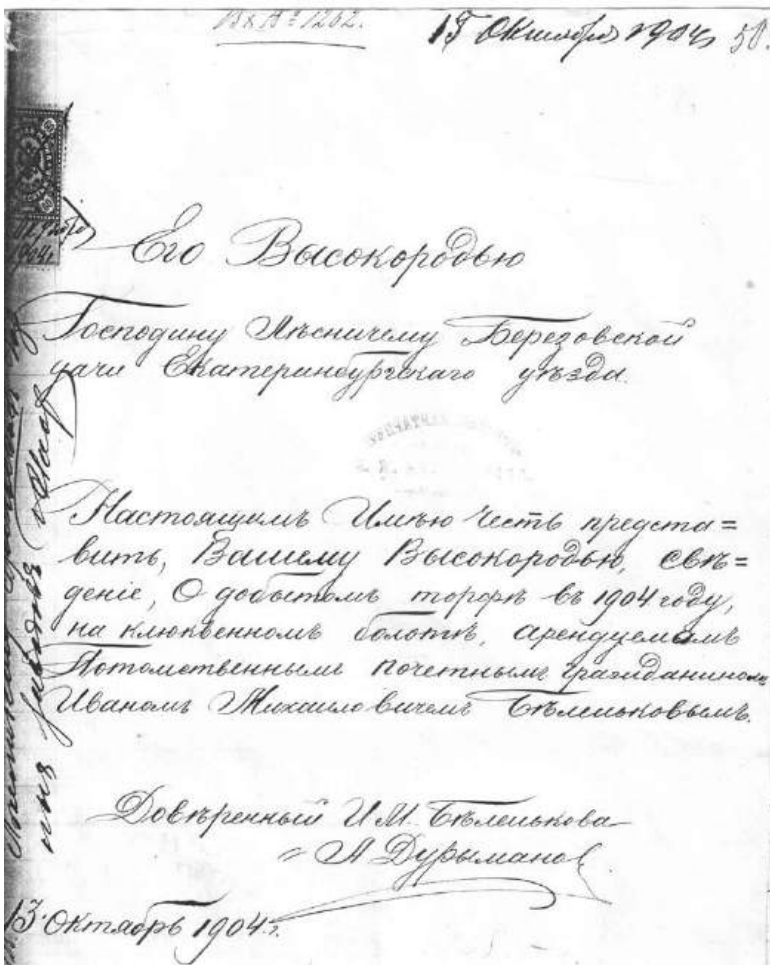 Вх № 1262.
15 Октября 1904 г. 50.
1904 г.
Его Высокородью
Господину Лѣсничему Березовской
дачи Екатеринбургскаго уѣзда.
Настоящимъ Имѣю Честь предста=
вить, Вашему Высокородью, свѣ=
деніе, О добытомъ торфѣ въ 1904 году,
на клюквенномъ болотѣ, арендуемомъ
Потомственнымъ почетнымъ гражданиномъ
Иваномъ Михаиловичемъ Бѣленьковымъ.
Довѣренный И.М. Бѣленькова
А Дурыманов
13. Октябрь 1904 г.